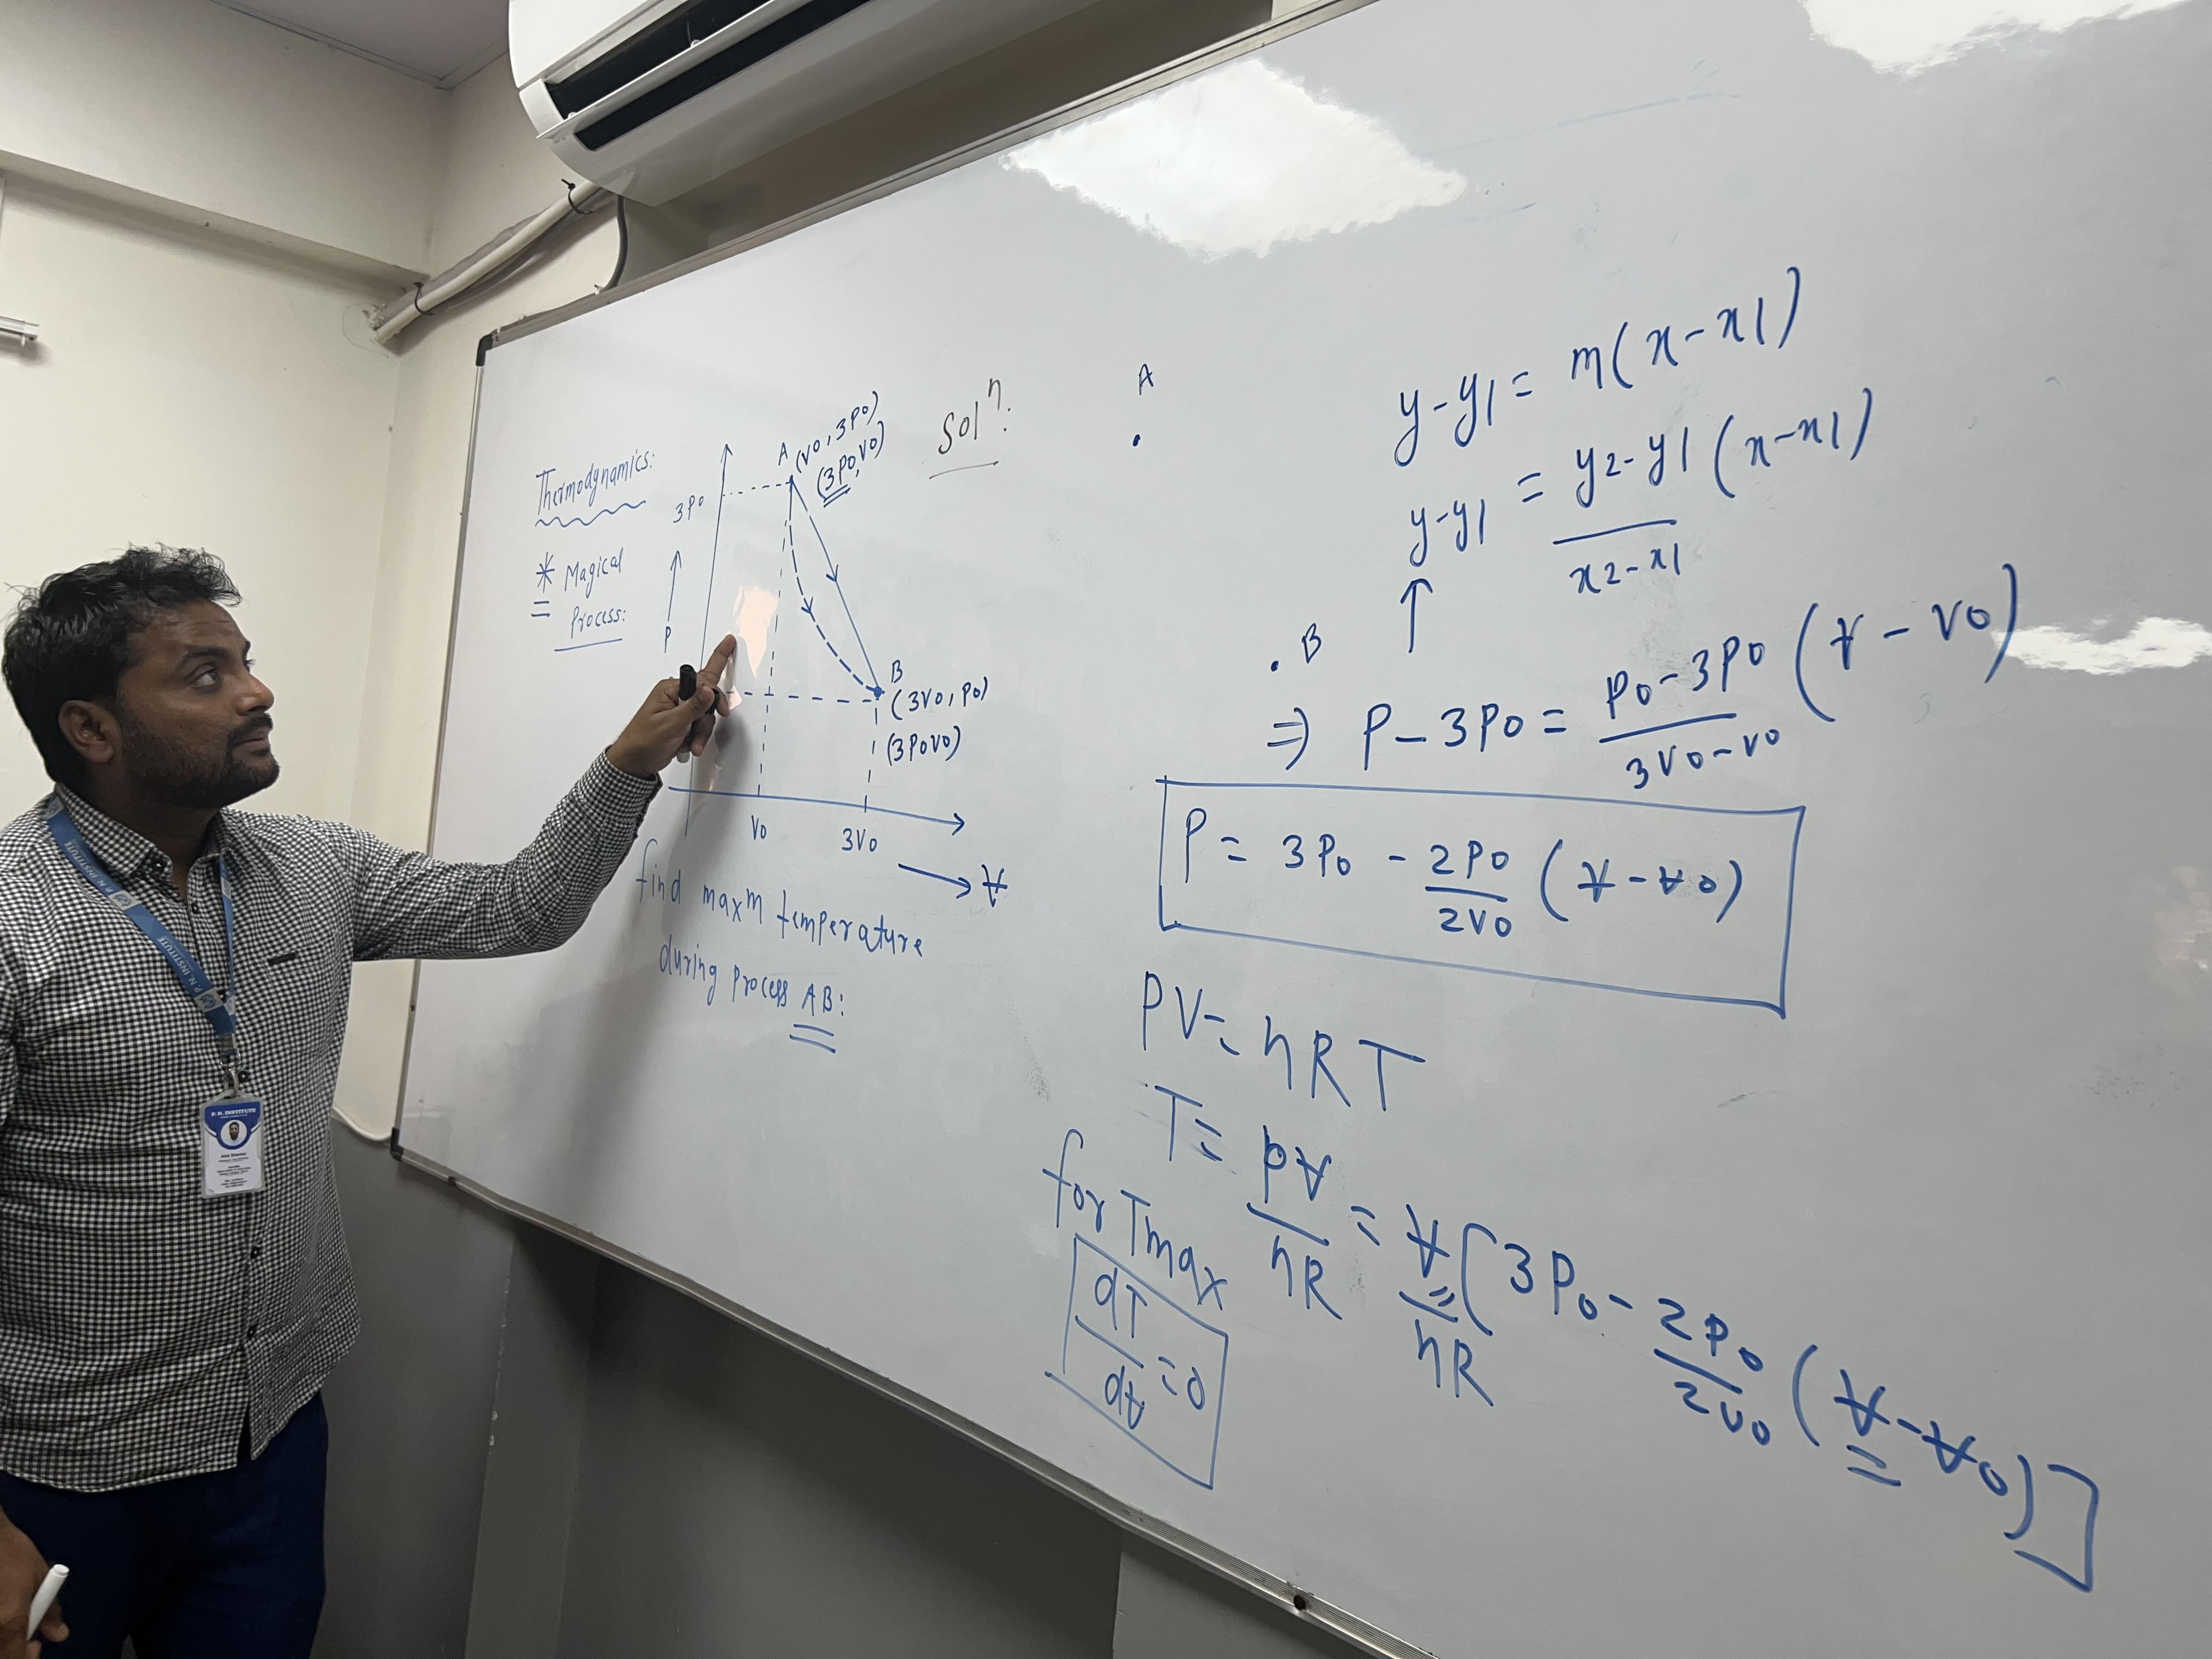 Thermodynamics:
* Magical
= Process:
3P0
P
A (V0, 3P0)
(3P0, V0)
B
(3V0, P0)
(3P0V0)
V0
3V0
V
find maxm temperature
during process AB:
Solⁿ:
A
. B
y-y1 = m(x-x1)
y-y1 = y2-y1 (x-x1)
x2-x1
⇒ P - 3P0 = P0-3P0 (V - V0)
3V0-V0
P = 3P0 - 2P0 (V-V0)
2V0
PV = nRT
T = PV = V [3P0 - 2P0 (V-V0)]
nR nR 2V0
for Tmax
dT = 0
dV
P.N. INSTITUTE
P. N. INSTITUTE